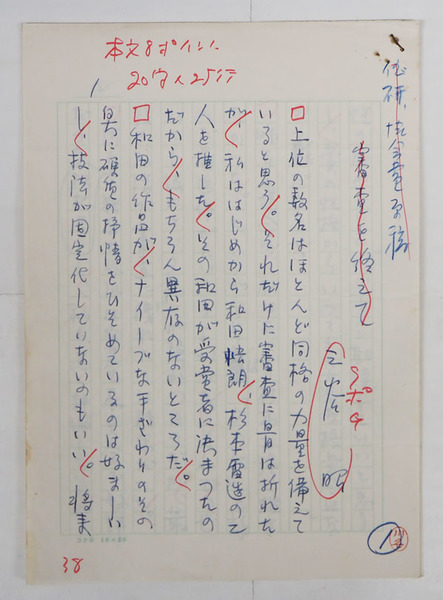 本文8ポイント
20字×25行
審査を終えて
三谷 昭
9ポ
上位の数名はほとんど同格の力量を備えて
いると思う。それだけに審査に骨は折れた
が、私ははじめから和田悟朗、杉本雷造の二
人を推した。その和田が受賞者に決まったの
だから、もちろん異存のないところだ。
和田の作品が、ナイーブな手ざわりのその
奥に硬質の抒情をひそめているのは好ましい
し、技法が固定化していないのもいい。将来
1
38